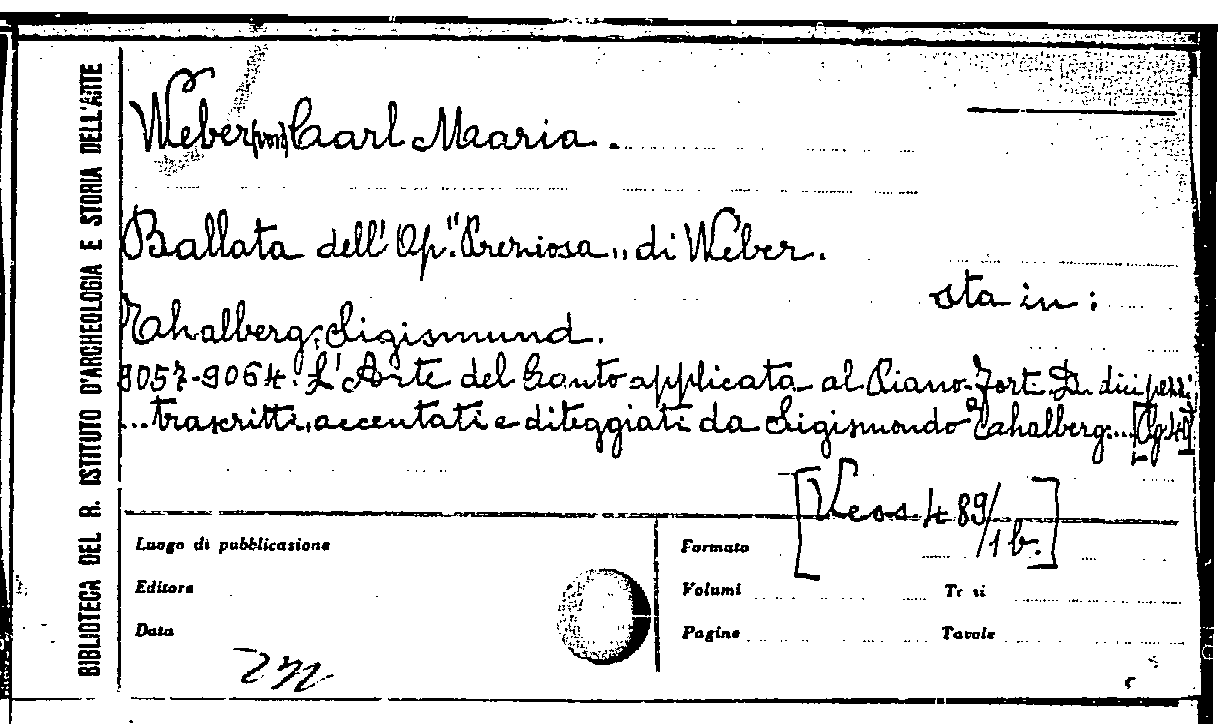 BIBLIOTECA DEL R. ISTITUTO D'ARCHEOLOGIA E STORIA DELL'ARTE
Weber (von) Carl Maria.
Ballata dell'Op. "Preziosa" di Weber.
sta in:
Tahalberg, Sigismund.
9057-9064. L'Arte del Canto applicata al Piano-Forte. D. dici pezzi
...trascritti, accentati e diteggiati da Sigismondo Tahalberg.... [Op.
[Vess. 489/1b.]
Luogo di pubblicazione
Formato
Editore
Volumi
Data
Pagine
Tavole